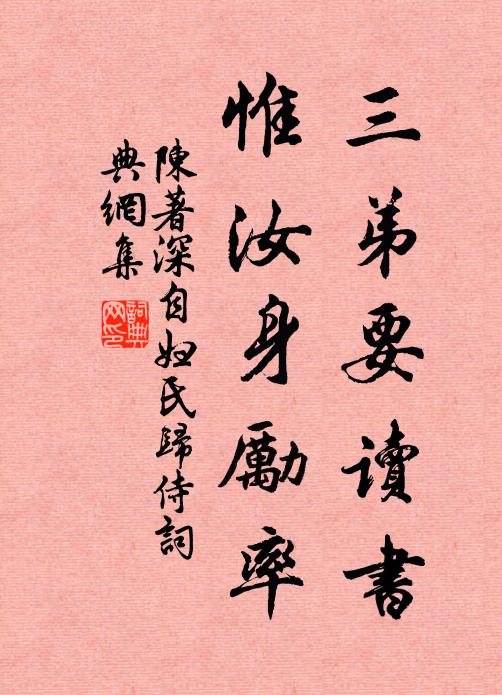 三弟要读書
惟汝身勵率
陳著深自婦氏歸侍詞
典網集
詞典网印